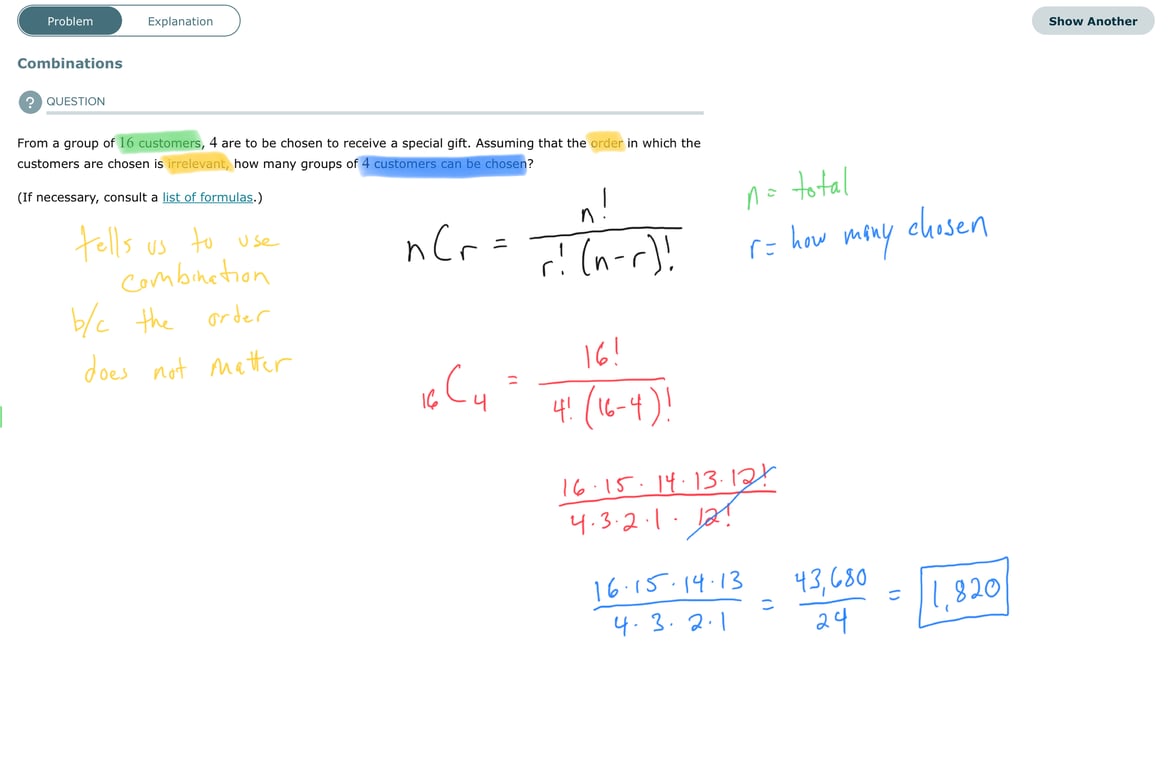 Problem
Explanation
Show Another
Combinations
? QUESTION
From a group of 16 customers, 4 are to be chosen to receive a special gift. Assuming that the order in which the
customers are chosen is irrelevant, how many groups of 4 customers can be chosen?
(If necessary, consult a list of formulas.)
tells us to use
combination
b/c the order
does not matter
nCr = n! / r! (n-r)!
n = total
r = how many chosen
16 C 4 = 16! / 4! (16-4)!
16 · 15 · 14 · 13 · 12! / 4 · 3 · 2 · 1 · 12!
16 · 15 · 14 · 13 / 4 · 3 · 2 · 1 = 43,680 / 24 = 1,820